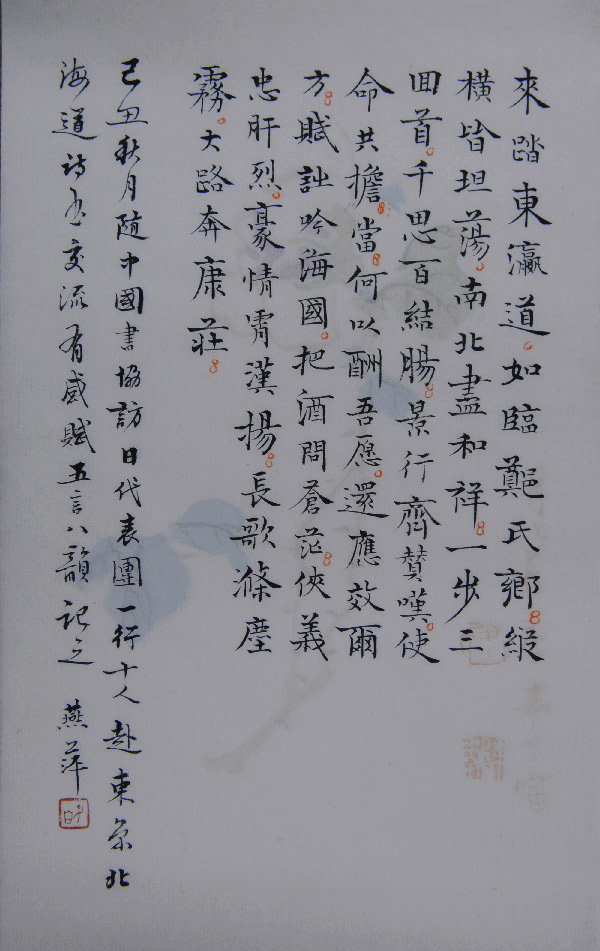 來踏東瀛道。如臨鄭氏鄉。縱
橫皆坦蕩。南北盡和祥。一步三
回首。千思百結腸。景行齊贊嘆。使
命共擔當。何以酬吾愿。還應效爾
方。賦詘吟海國。把酒問蒼茫。俠義
忠肝烈。豪情霄漢揚。長歌滌塵
霧。大路奔康莊。
己丑秋月随中國書協訪日代表團一行十人赴東京北
海道詩书交流有感賦五言八韻記之 燕萍